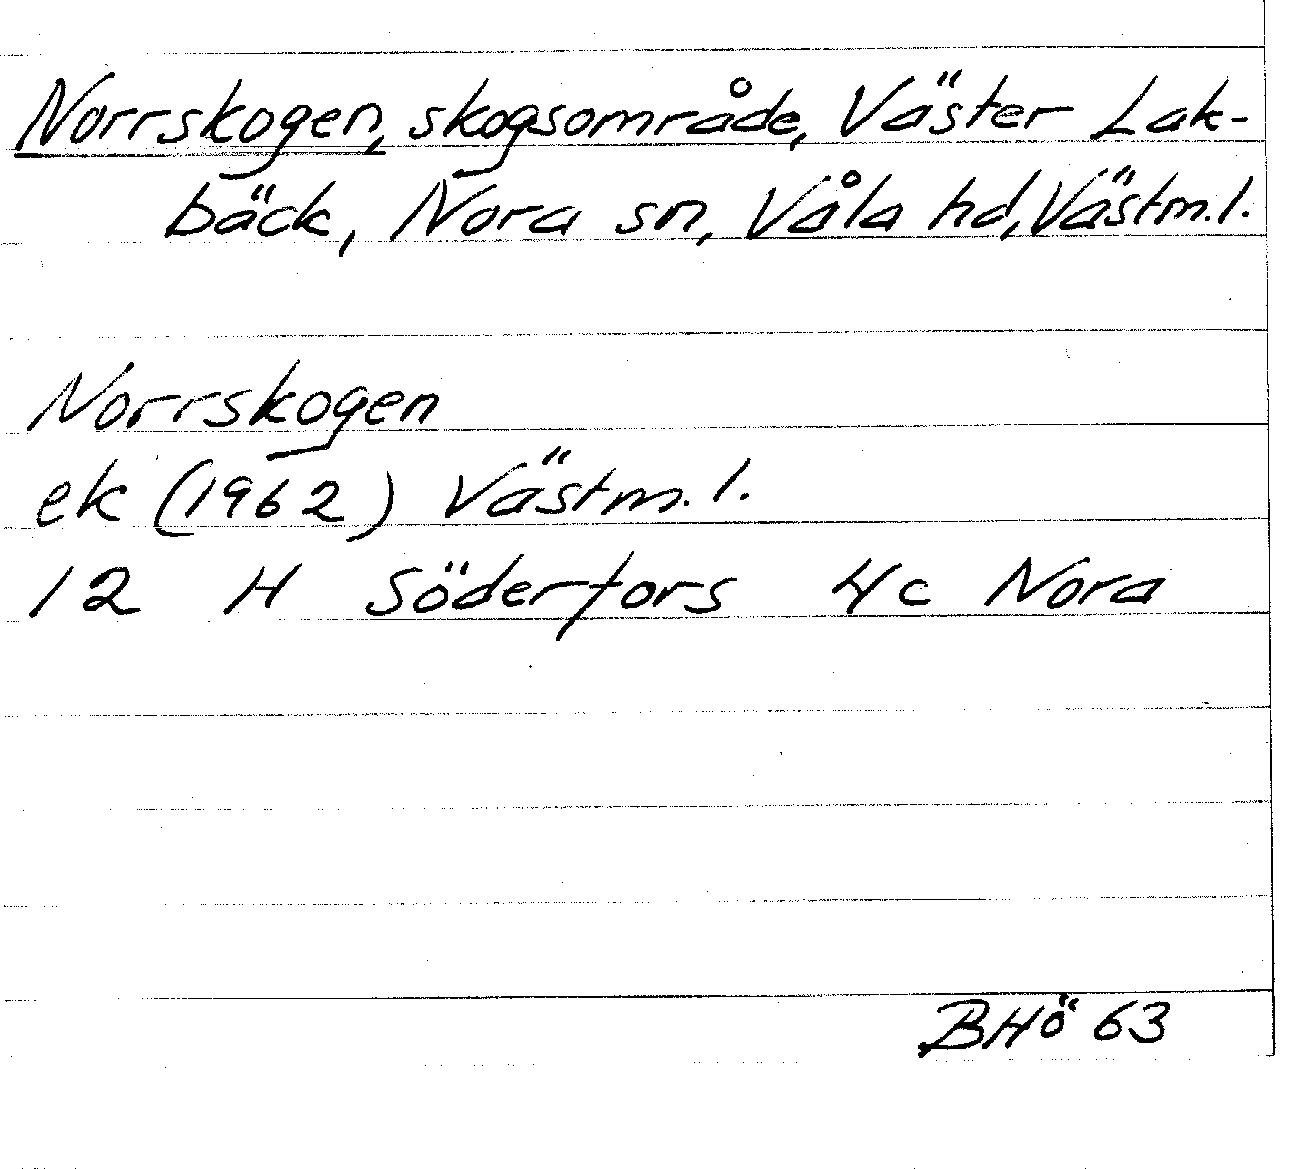 Norrskogen, skogsområde, Väster Lak-
bäck, Nora sn, Våla hd, Västm.l.
Norrskogen
ek (1962) Västm.l.
12 H Söderfors 4c Nora
BHö 63